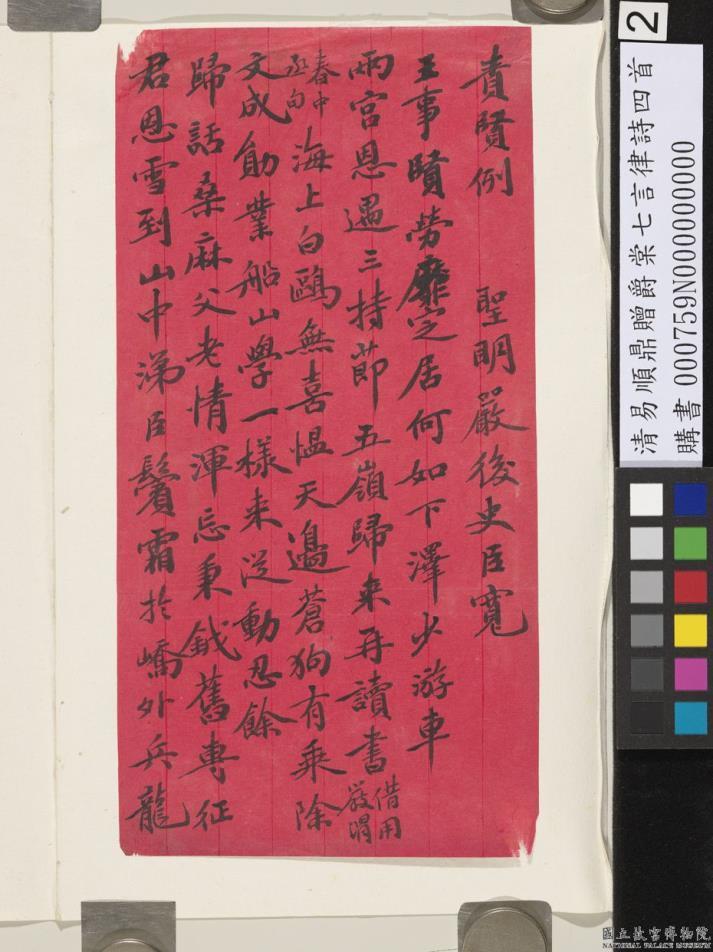 責賢例 聖明嚴後史臣寬
王事賢勞靡定居何如下澤少游車
兩宮恩遇三持節五嶺歸来再讀書 借用
春中
丞句 海上白鷗無喜愠天邊蒼狗有乘除
文成勛業船山學一樣来從動忍餘
歸話桑麻父老情渾忘秉鉞舊專征
君恩雪到山中涕臣鬢霜於嶠外兵龍
2
清易順鼎贈爵棠七言律詩四首
購書 000759N0000000000
國立故宮博物院
NATIONAL PALACE MUSEUM